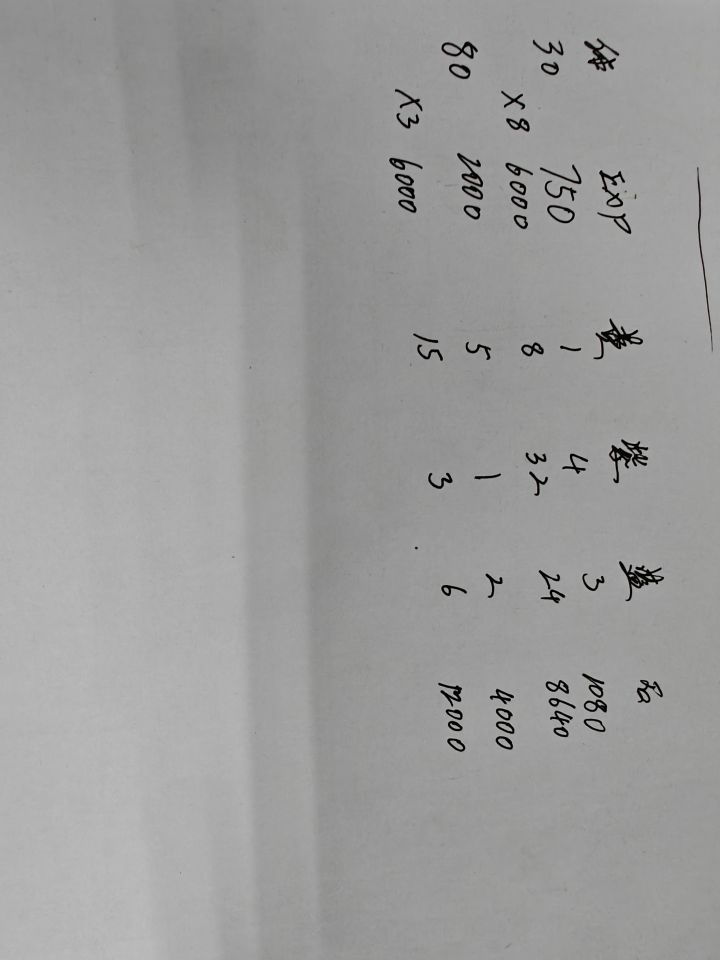 EXP
30 750 1 4 3 1080
X8 6000 8 32 24 8640
80 2000 5 1 2 4000
X3 6000 15 3 6 12000